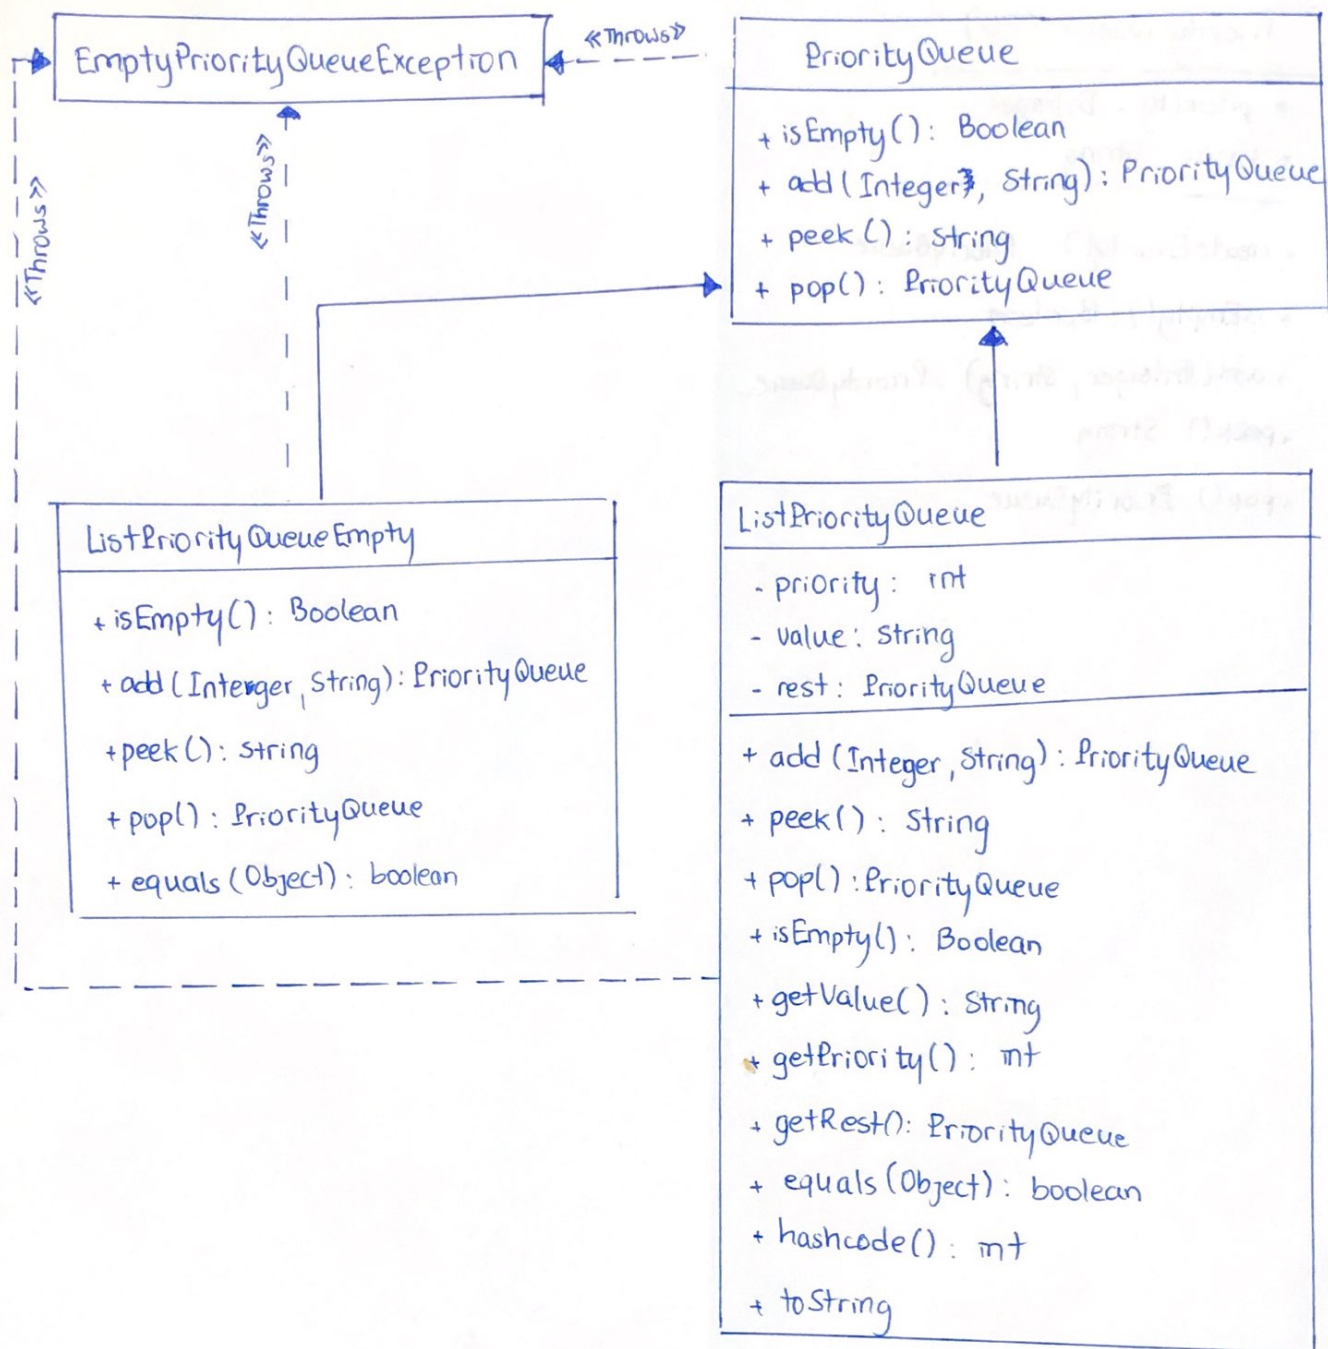 EmptyPriorityQueueException
«Throws»
«Throws»
«Throws»
PriorityQueue
+ isEmpty(): Boolean
+ add(Integer, String): PriorityQueue
+ peek(): String
+ pop(): PriorityQueue
ListPriorityQueueEmpty
+ isEmpty(): Boolean
+ add(Interger, String): PriorityQueue
+ peek(): String
+ pop(): PriorityQueue
+ equals(Object): boolean
ListPriorityQueue
- priority: int
- value: String
- rest: PriorityQueue
+ add(Integer, String): PriorityQueue
+ peek(): String
+ pop(): PriorityQueue
+ isEmpty(): Boolean
+ getValue(): String
+ getPriority(): int
+ getRest(): PriorityQueue
+ equals(Object): boolean
+ hashcode(): int
+ toString